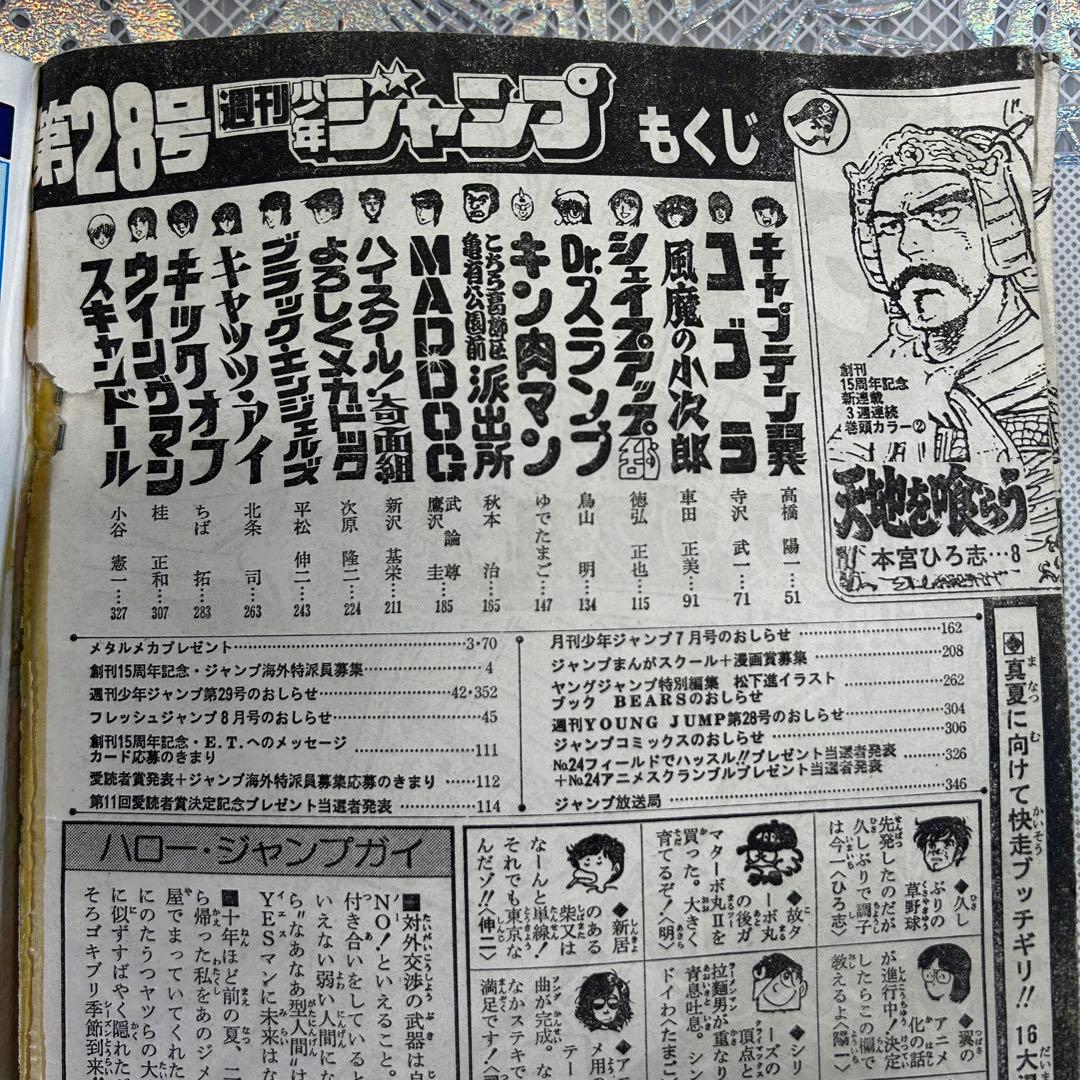 第28号 週刊少年ジャンプ もくじ
創刊
15周年記念
新連載
3週連続
巻頭カラー②
天地を喰らう
本宮ひろ志…8
キャプテン翼 高橋陽一…51
コブラ 寺沢武一…71
風魔の小次郎 車田正美…91
シェイプアップ乱 徳弘正也…115
Dr.スランプ 鳥山明…134
キン肉マン ゆでたまご…147
こちら葛飾区亀有公園前派出所 秋本治…165
MADDOG 武論尊 鷹沢圭…185
ハイスクール!奇面組 新沢基栄…211
よろしくメカドック 次原隆二…224
ブラック・エンジェルズ 平松伸二…243
キャッツ・アイ 北条司…263
キックオフ ちば拓…283
ウイングマン 桂正和…307
スキャンドール 小谷憲一…327
メタルメカプレゼント…3・70
創刊15周年記念・ジャンプ海外特派員募集…4
週刊少年ジャンプ第29号のおしらせ…42・352
フレッシュジャンプ8月号のおしらせ…45
創刊15周年記念・E.T.へのメッセージ
カード応募のきまり…111
愛読者賞発表+ジャンプ海外特派員募集応募のきまり…112
第11回愛読者賞決定記念プレゼント当選者発表…114
月刊少年ジャンプ7月号のおしらせ…162
ジャンプまんがスクール+漫画賞募集…208
ヤングジャンプ特別編集 松下進イラスト
ブック BEARSのおしらせ…262
週刊YOUNG JUMP第28号のおしらせ…304
ジャンプコミックスのおしらせ…306
No.24フィールドでハッスル!!プレゼント当選者発表
+No.24アニメスクランブルプレゼント当選者発表…326
ジャンプ放送局…346
真夏に向けて快走ブッチギリ!! 16大
◆久し
ぶりの
草野球
先発したのだが
久しぶりで調子
は今一〈ひろ志〉
◆故タ
ーボ丸
の後ガ
マターボ丸Ⅱを
買った。大きく
育てるぞ!〈明〉
◆新居
のある
柴又は
なーんと単線!
それでも東京な
んだゾ!!〈伸二〉
◆翼の
アニメ
化の話
が進行中!決定
したらこの欄で
教えるよ〈陽一〉
◆シリ
ーズの
頂点と
拉麺男が重なり
青息吐息。シン
ドイわ〈たまご〉
ハロー・ジャンプガイ
■対外交渉の武器は
NO!といえること。
付き合いをしていると
いえない弱い人間にな
ら"なあなあ型人間"は
YESマンに未来はな
■十年ほど前の夏、二
ら帰った私をあのジメ
屋でまっていてくれた
にのたうつヤツらの大
に似ずすばやく隠れた
そろゴキブリ季節到来!!